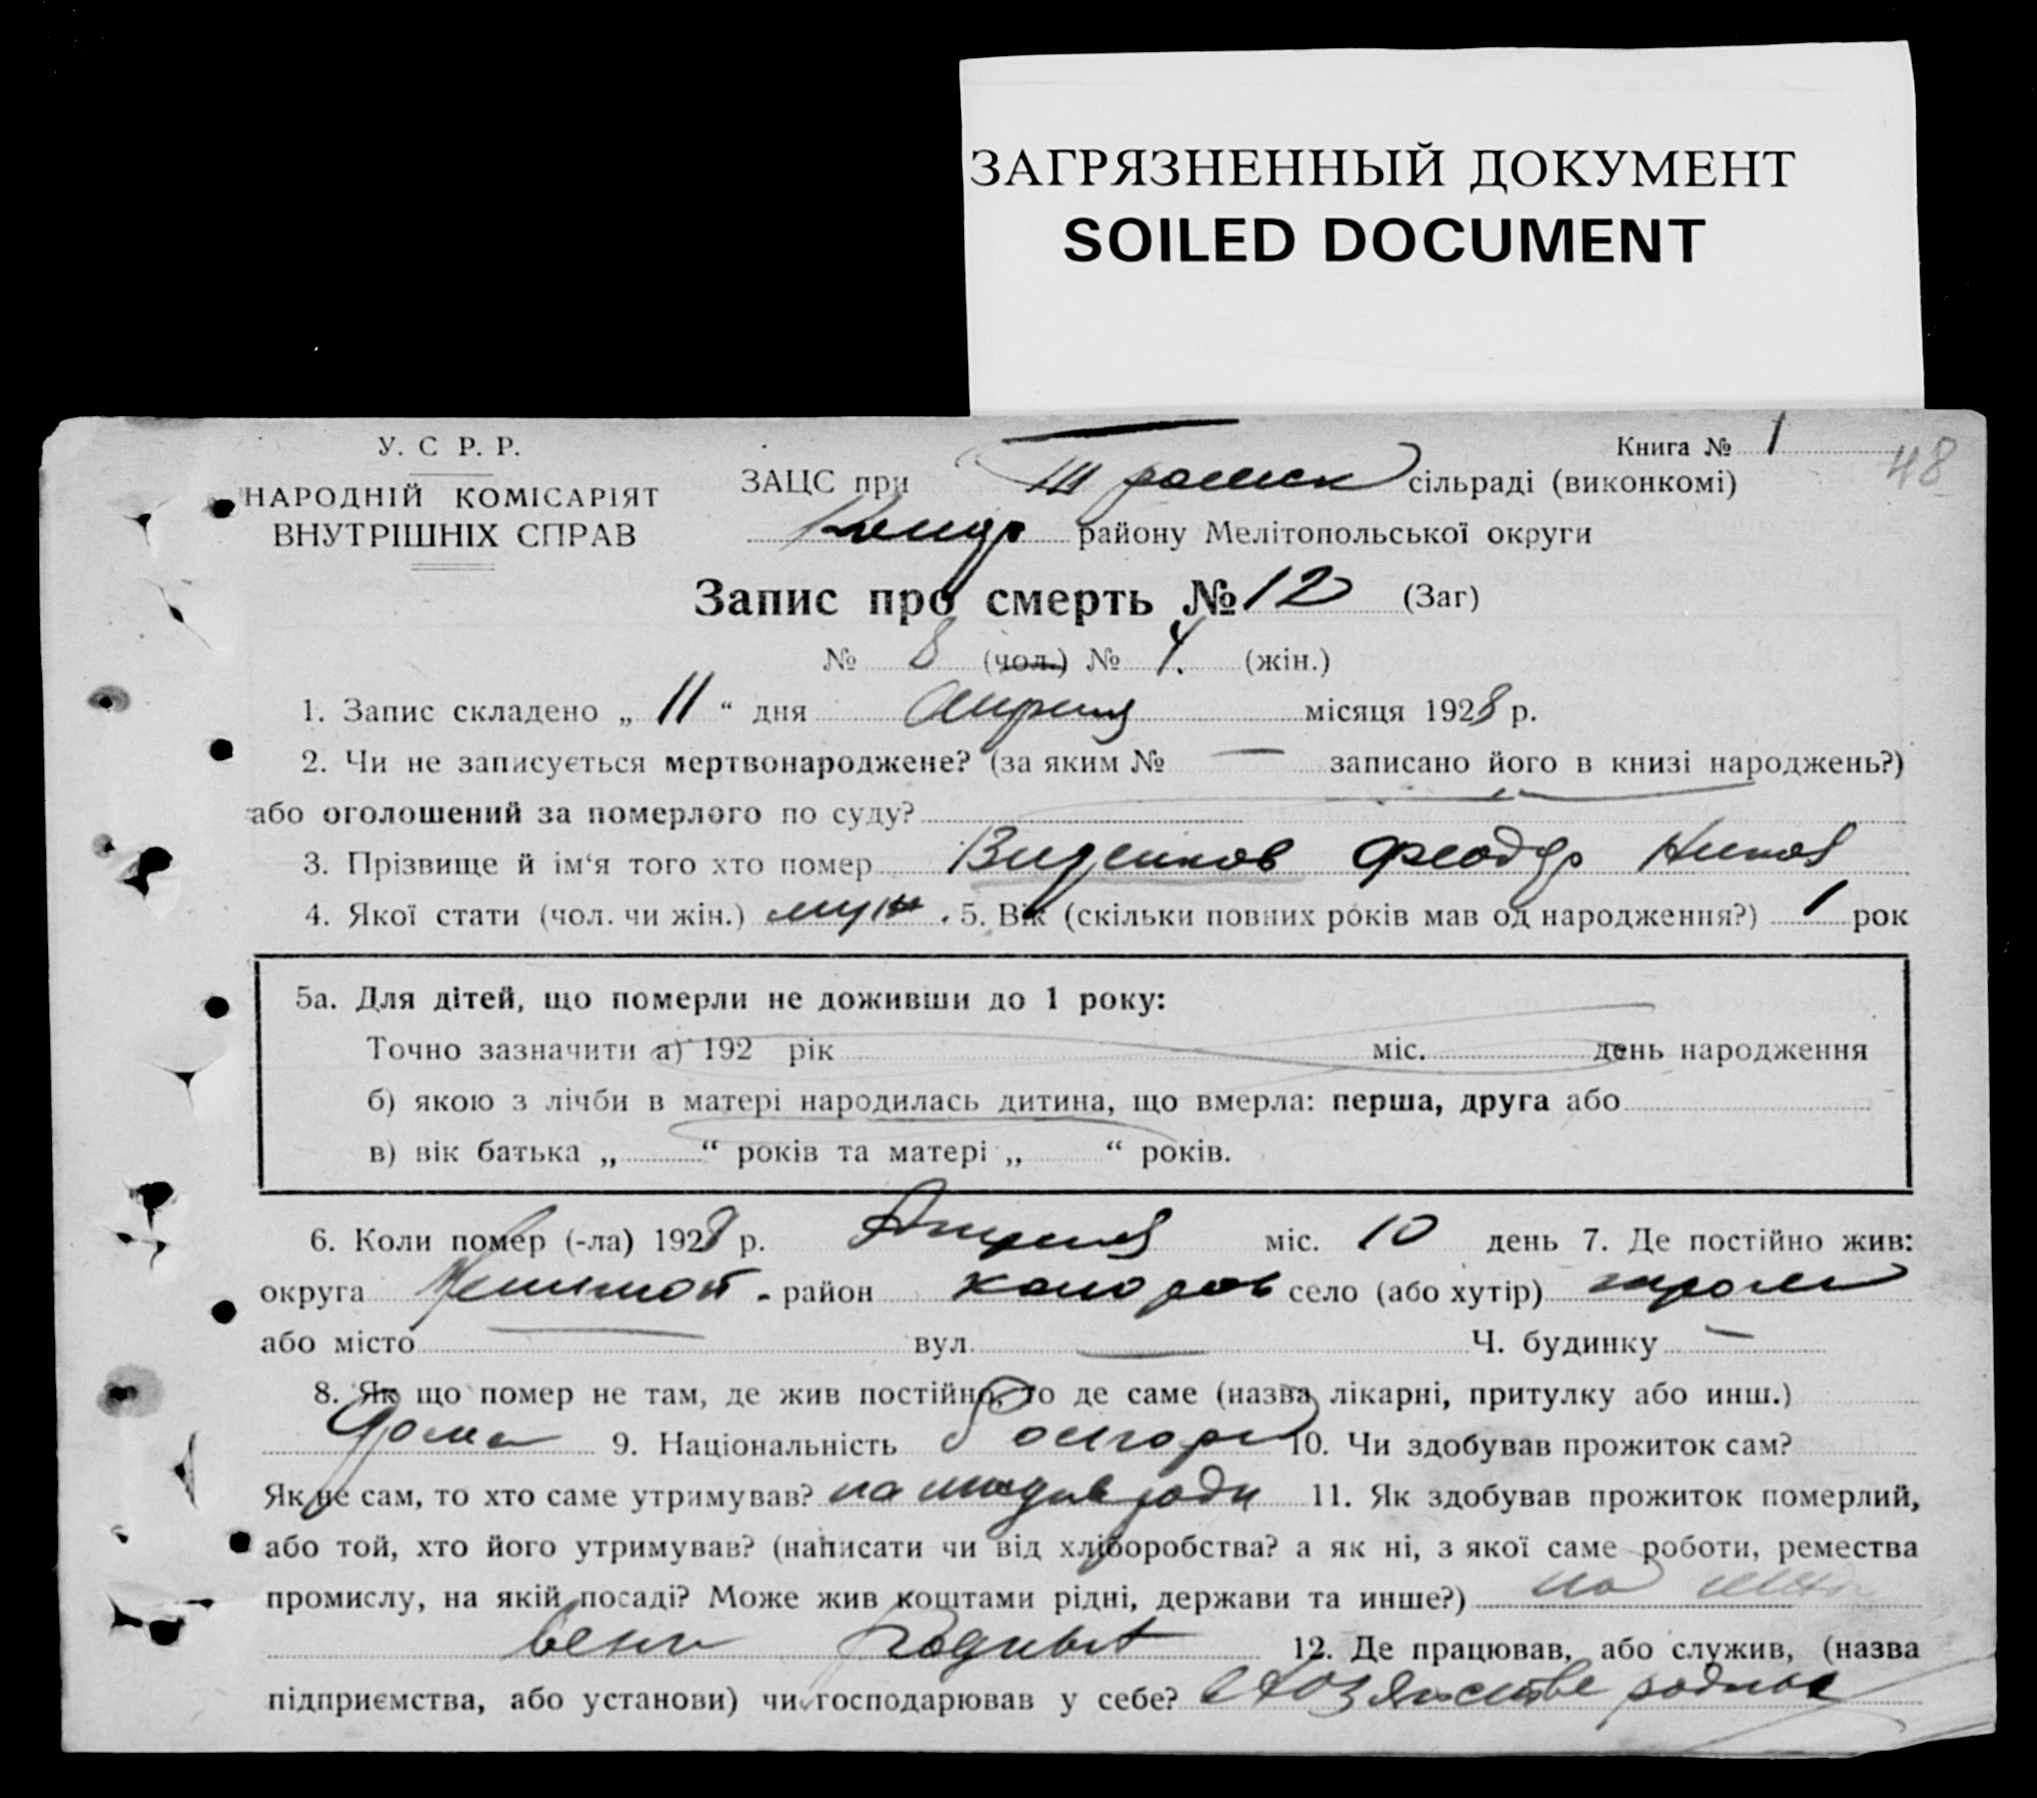 ЗАГРЯЗНЕННЫЙ ДОКУМЕНТ
SOILED DOCUMENT
У. С Р. Р.
НАРОДНІЙ КОМІСАРІЯТ
ВНУТРІШНІХ СПРАВ
Книга № 1
48
ЗАЦС при сільраді (виконкомі)
району Мелітопольської округи
Запис про смерть № 12 (Заг)
№ 8 (чол.) № 4. (жін.)
1. Запис складено „ 11 “ дня Апреля місяця 1928 р.
2. Чи не записується мертвонароджене? (за яким № — записано його в книзі народжень?)
або оголошений за померлого по суду?
3. Прізвище й ім‘я того хто помер Феодор Никол
4. Якої стати (чол. чи жін.) муж. 5. Вік (скільки повних років мав од народження?) 1 рок
5а. Для дітей, що померли не доживши до 1 року:
Точно зазначити а) 192 рік міс. день народження
б) якою з лічби в матері народилась дитина, що вмерла: перша, друга або
в) вік батька „ “ років та матері „ “ років.
6. Коли помер (-ла) 1928 р. Апреля міс. 10 день 7. Де постійно жив:
округа район село (або хутір)
або місто — вул. — Ч. будинку —
8. Як що помер не там, де жив постійно, то де саме (назва лікарні, притулку або инш.)
дома 9. Національність болгори 10. Чи здобував прожиток сам?
Як не сам, то хто саме утримував? на 11. Як здобував прожиток померлий,
або той, хто його утримував? (написати чи від хліборобства? а як ні, з якої саме роботи, ремества
промислу, на якій посаді? Може жив коштами рідні, держави та инше?) на
12. Де працював, або служив, (назва
підприємства, або установи) чи господарював у себе? в хозяйстве родных